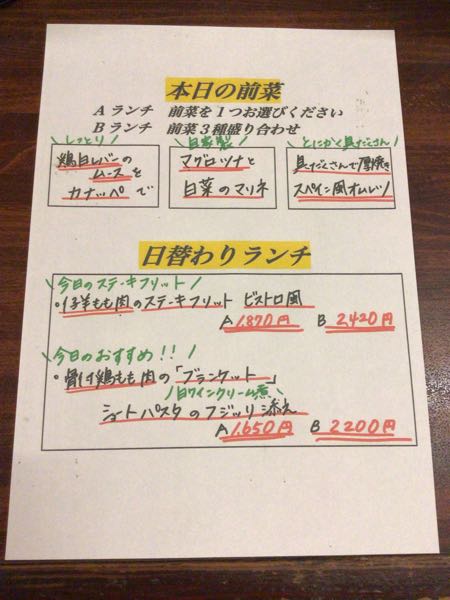 本日の前菜
Aランチ 前菜を1つお選びください
Bランチ 前菜3種盛り合わせ
\しっとり/
鶏白レバーの
ムースを
カナッペで
\自家製/
マグロツナと
白菜のマリネ
\とにかく具だくさん/
具だくさんで厚焼き
スペイン風オムレツ
日替わりランチ
\今日のステーキフリット/
・仔羊もも肉のステーキフリット ビストロ風
A 1,870円 B 2,420円
\今日のおすすめ!!/
・骨付鶏もも肉の「ブランケット」
/白ワインクリーム煮\
ショートパスタのフジッリ添え
A 1,650円 B 2200円